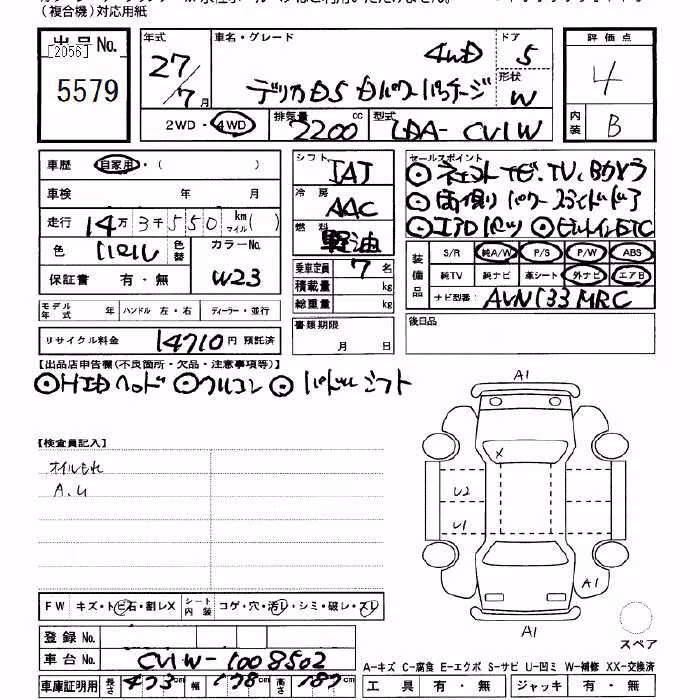 (複合機)対応用紙
出品No.
[2056]
5579
年式
27/7月
車名・グレード
4WD
デリカD5 Dパワーパッケージ
ドア
5
形状
W
2WD・4WD
排気量
2200
cc
型式
LDA-CV1W
評価点
4
内装
B
車歴
自家用・( )
車検 年 月
走行
14万3千550
km
マイル
( )
色
色替
カラーNo.
W23
保証書 有・無
モデル年式 年 ハンドル 左・右 ディーラー・並行
リサイクル料金 14710円 預託済
シフト
IAT
冷房
AAC
燃料
軽油
乗車定員 7名
積載量 kg
総重量 kg
書類期限
月 日
セールスポイント
TV、Bカメラ
両側パワースライドドア
エアロパーツ ビルトインETC
装備品
S/R 純A/W P/S P/W ABS
純TV 純ナビ 革シート 外ナビ エアB
ナビ型番 AVN133MRC
後日品
【出品店申告欄(不良箇所・欠品・注意事項等)】
HIDヘッド クルコン パドルシフト
【検査員記入】
オイルもれ
A.U
A1
X
U2
U1
A1
A1
スペア
FW キズ・トビ石・割レX
シート内装 コゲ・穴・汚レ・シミ・破レ・スレ
登録No.
車台No. CV1W-1008502
車庫証明用 長さ 473cm 幅 178cm 高さ 187cm
A-キズ C-腐食 E-エクボ S-サビ U-凹ミ W-補修 XX-交換済
工具 有・無 ジャッキ 有・無